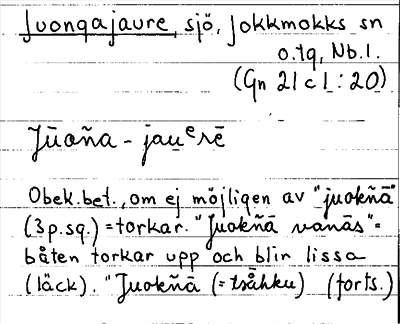 Juongajaure, sjö, Jokkmokks sn
o.tg, Nb.l.
(Gn 21 c 1 : 20)
Jūoña - jauᵉrē
Obek.bet., om ej möjligen av "juokñā"
(3 p.sg.) = torkar. "Juokñā vanās" =
båten torkar upp och blir lissa
(läck). "Juokñā (= tsåhku) (forts.)